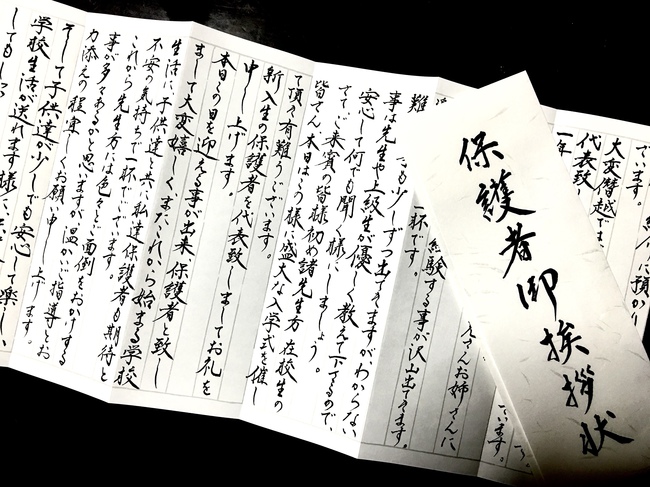 保護者御挨拶状
です。
預かり
大変僭越では
代表致
一年
ています。
お姉さんに
経験する事が沢山出て来ます。
一杯です。
も少しずつ出て来ますがわからない
事は先生や上級生が優しく教えて下さるので、
安心して何でも聞く様にしましょう。
来賓の皆様初め諸先生方在校生の
皆さん本日はこの様に盛大な入学式を催し
て頂き有難うございます。
新入生の保護者を代表致しましてお礼を
申し上げます。
本日この日を迎える事が出来保護者と致し
まして大変嬉しく、まだこれから始まる学校
生活に子供達と共に私達保護者も期待と
不安の気持ちで一杯でいます。
これから先生方には色々とご面倒をおかけする
事が多々あるかと思いますが温かい指導とお
力添えの程宜しくお願い申し上げます。
そして子供達が少しでも安心して楽しい
学校生活が送れます様に